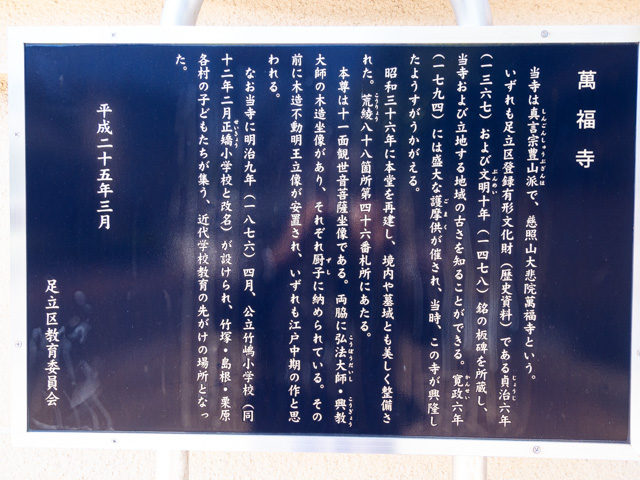 萬福寺
当寺は真言宗豊山派で、慈照山大悲院萬福寺という。
いずれも足立区登録有形文化財（歴史資料）である貞治六年
（一三六七）および文明十年（一四七八）銘の板碑を所蔵し、
当寺および立地する地域の古さを知ることができる。寛政六年
（一七九四）には盛大な護摩供が催され、当時、この寺が興隆し
たようすがうかがえる。
昭和三十六年に本堂を再建し、境内や墓域とも美しく整備さ
れた。荒綾八十八箇所第四十六番札所にあたる。
本尊は十一面観世音菩薩坐像である。両脇に弘法大師・興教
大師の木造坐像があり、それぞれ厨子に納められている。その
前に木造不動明王立像が安置され、いずれも江戸中期の作と思
われる。
なお当寺に明治九年（一八七六）四月、公立竹嶋小学校（同
十二年二月正矯小学校と改名）が設けられ、竹塚・島根・栗原
各村の子どもたちが集う、近代学校教育の先がけの場所となっ
た。
平成二十五年三月
足立区教育委員会